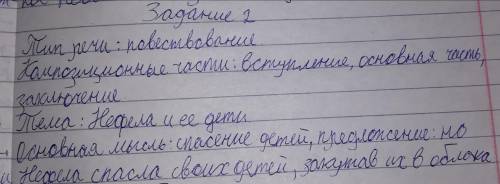 Задание 2
Тип речи: повествование
Композиционные части: вступление, основная часть,
заключение
Тема: Нефела и ее дети
Основная мысль: спасение детей, предложение: но
Нефела спасла своих детей, закутав их в облака